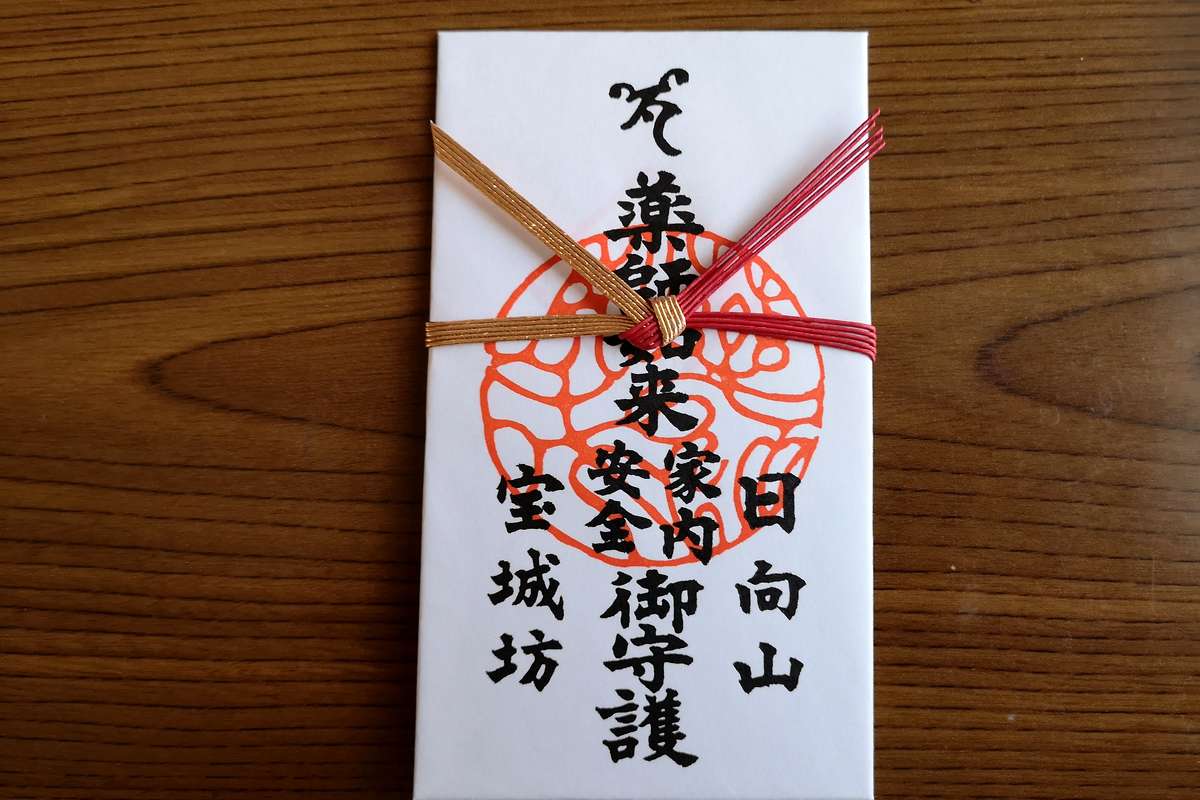 日向山
薬師如来
家内
安全
御守護
宝城坊